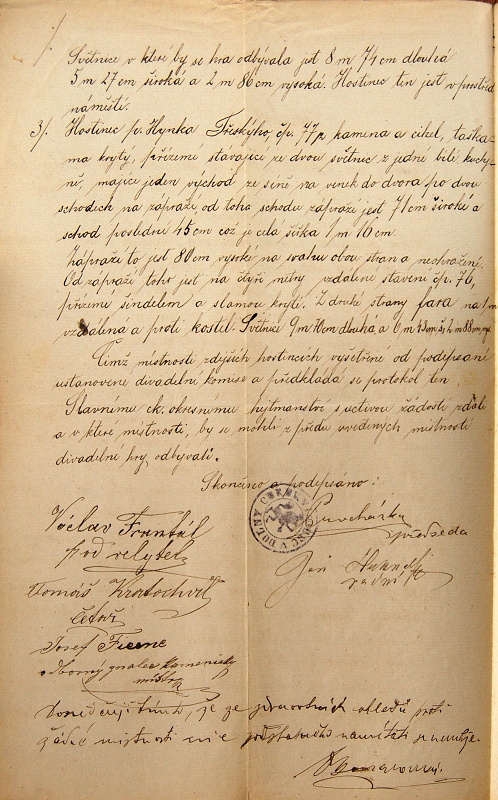 Světnice v které by se hra odbývala jest 8 m 74 cm dlouhá
5 m 27 cm široká a 2 m 86 cm vysoká. Hostinec ten jest v prostřed
náměstí.
3/. Hostinec p. Hynka Třeskýho, čp. 77, z kamena a cihel, taška-
ma krytý, přízemí stávající ze dvou světnic z jedné bílé kuchy-
ně, majíce jeden východ ze síně na venek do dvora po dvou
schodech na zápraží, od toho schodu zápraží jest 71 cm široké a
schod poslední 45 cm což je celá šířka 1 m 16 cm.
Zápraží to jest 80 cm vysoké na svahu obou stran a neohražené.
Od zápraží toho jest na čtyři metry vzdálené stavení čp. 76,
přízemí šindelem a slamou kryté. Z druhé strany fara na 1 m
vzdálena a proti kostel. Světnice 9 m 70 cm dlouhá, a 6 m 43 cm ši, 2 m 88 cm
Čímž místnosti zdejších hostincích vyšetřené od podepsané
ustanovené divadelní komise a předkládá se protokol ten
Slavnému ck. okresnímu hejtmanství s uctivou žádostí zdali
a v které místnosti, by se mohli z předu uvedených místností
divadelní hry odbývati.
Skončeno a podepsáno:
Václav Frantál
pod velitel
Tomáš Kratochvíl
četař
Josef
odborný znalec kamenický
mistr
předseda
Jan
radní
že ze zdravotních ohledů proti
žádné místnosti nic podstatného namítati se nemůže.